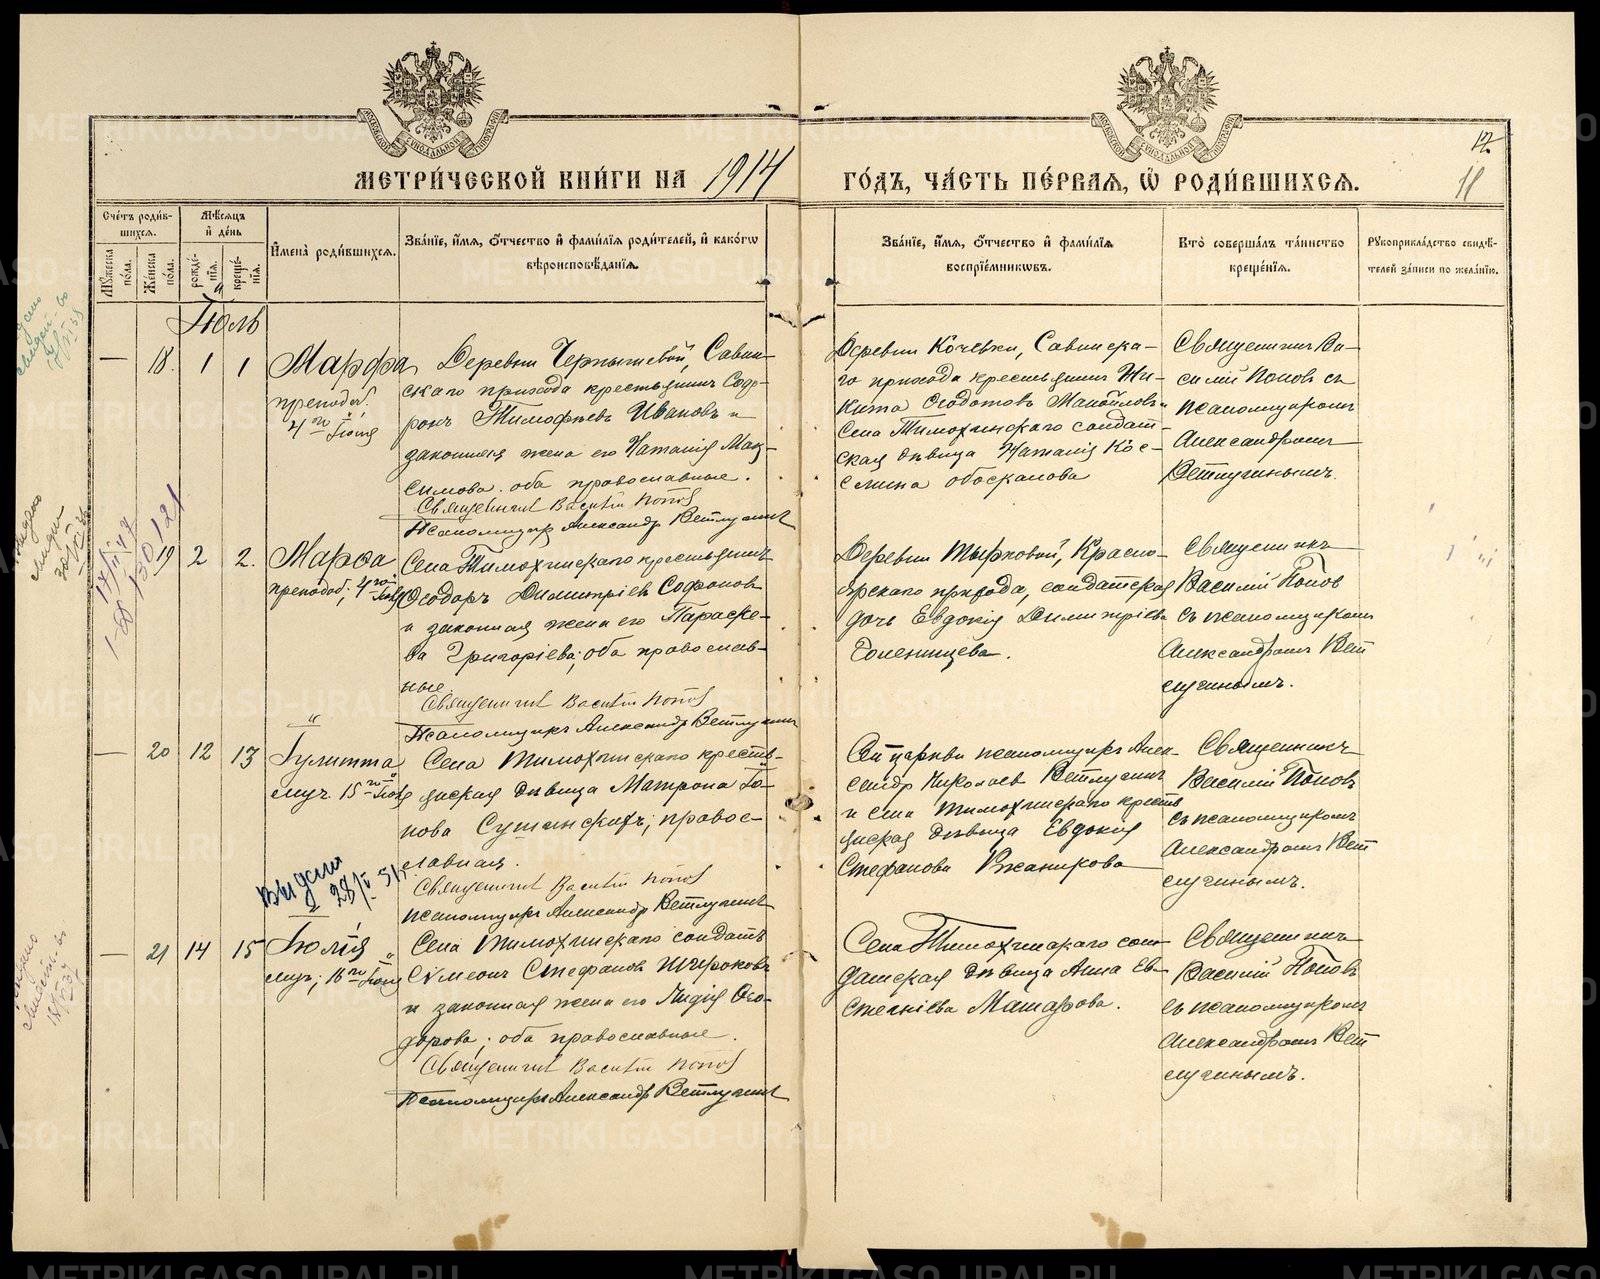 МЕТРИ́ЧЕСКОЙ КНИ́ГИ НА 1914
ГО́ДЪ, ЧА́СТЬ ПЕ́РВАЯ, Ѡ҆ РОДИ́ВШИХСЯ.
12
11
Сче́тъ роди́в-
шихся.
Мѣ́сяцъ
и҆ де́нь
Му́жеска
по́ла.
Же́нска
по́ла.
рожде́-
нїя.
креще́-
нїя.
И҆мена̀ роди́вшихся.
Зва́нїе, и҆́мя, ѻ҆́тчество и҆ фами́лїя роди́телей, и҆ како́гѡ
вѣроисповѣ́данїя.
Зва́нїе, и҆́мя, ѻ҆́тчество и҆ фами́лїя
воспрїе́мникѡвъ.
Кто̀ соверша́лъ та́инство
креще́нїя.
Рꙋкоприкла́дство свидѣ́-
телей за́писи по жела́нїю.
Іюль
— 18. 1 1
Марфа
преподоб.
4го Іюля
Деревни Чернышевой, Савин-
скаго прихода крестьянинъ Соф-
ронъ Тимофѣевъ Ивановъ и
законная жена его Наталія Мак-
симова. оба православные.
Священникъ Василій Поповъ
Псаломщикъ Александр Ветлугинъ
Деревни Кочевки, Савинска-
го прихода крестьянинъ Ни-
кита Ѳедотовъ Мано́йловъ и
Села Тимохинскаго солдат-
ская дѣвица Наталія
Священникъ Ва-
силій Поповъ съ
псаломщикомъ
Александромъ
Ветлугинымъ.
19 2 2.
Марѳа
преподоб; 4го
Села Тимохинскаго крестьянинъ
Ѳеодоръ Димитріевъ Софоновъ
и законная жена его Параске-
ва Григоріева; оба православ-
ные.
Священникъ Василій Поповъ
Псаломщикъ Александр Ветлугинъ
Деревни Тырковой, Красно-
ярскаго прихода, солдатская
дочь Евдокія Димитріева
Голенищева.
Священникъ
Василій Попов
съ псаломщикомъ
Александромъ Вет
лугинымъ.
— 20 12 13
Іулитта
муч. 15го Іюля
Села Тимохинскаго кресть-
янская дѣвица Матрона
Сушинскихъ; правос-
лавная.
Священникъ Василій Поповъ
псаломщикъ Александр Ветлугинъ
Сей церкви псаломщикъ Алек-
сандр Николаев Ветлугинъ
и села Тимохинскаго кресть
янская дѣвица Евдокія
Стефанова Ржаникова
Священникъ
Василій Поповъ
съ псаломщикомъ
Александромъ Вет
лугинымъ.
Выдано
28/V 51г
— 21 14 15
Іюлія
муч; 16го Іюля
Села Тимохинскаго солдатъ
Сѵмеонъ Стефановъ Широковъ
и законная жена его Лидія Ѳео-
дорова; оба православные.
Священникъ Василій Поповъ
Псаломщикъ Александр Ветлугинъ
Села Тимохинскаго сол-
датская дѣвица Анна Ев-
стегнѣева Машарова.
Священникъ
Василій Поповъ
съ псаломщикомъ
Александромъ Вет
лугинымъ.
METRIKI.GASO-URAL.RU